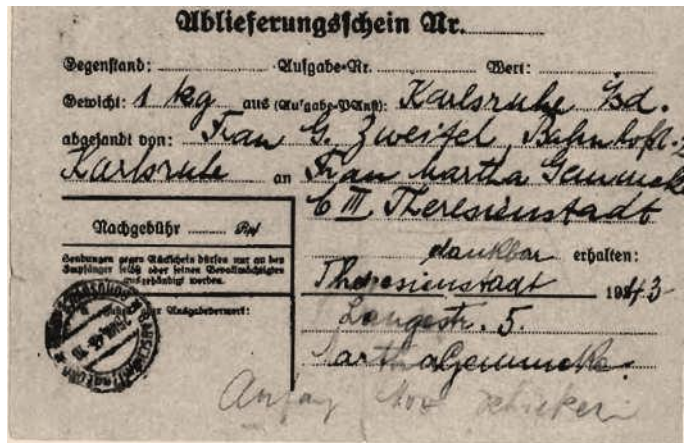 Ablieferungsschein Nr.
Gegenstand: Aufgabe-Nr. Wert:
Gewicht: 1 kg aus (Aufgabe-PAnst): Karlsruhe Bd.
abgesandt von: Frau G. Zweifel, Bahnhofst.
Karlsruhe an Frau Martha Gemmeke
C III Theresienstadt
Nachgebühr Rpf
Sendungen gegen Rückschein dürfen nur an den
Empfänger selbst oder seinen Bevollmächtigten
ausgehändigt werden.
dankbar erhalten:
Theresienstadt 1943
oder Ausgabevermerk:
Langestr. 5.
Martha Gemmeke.
Anfang Nov schicken